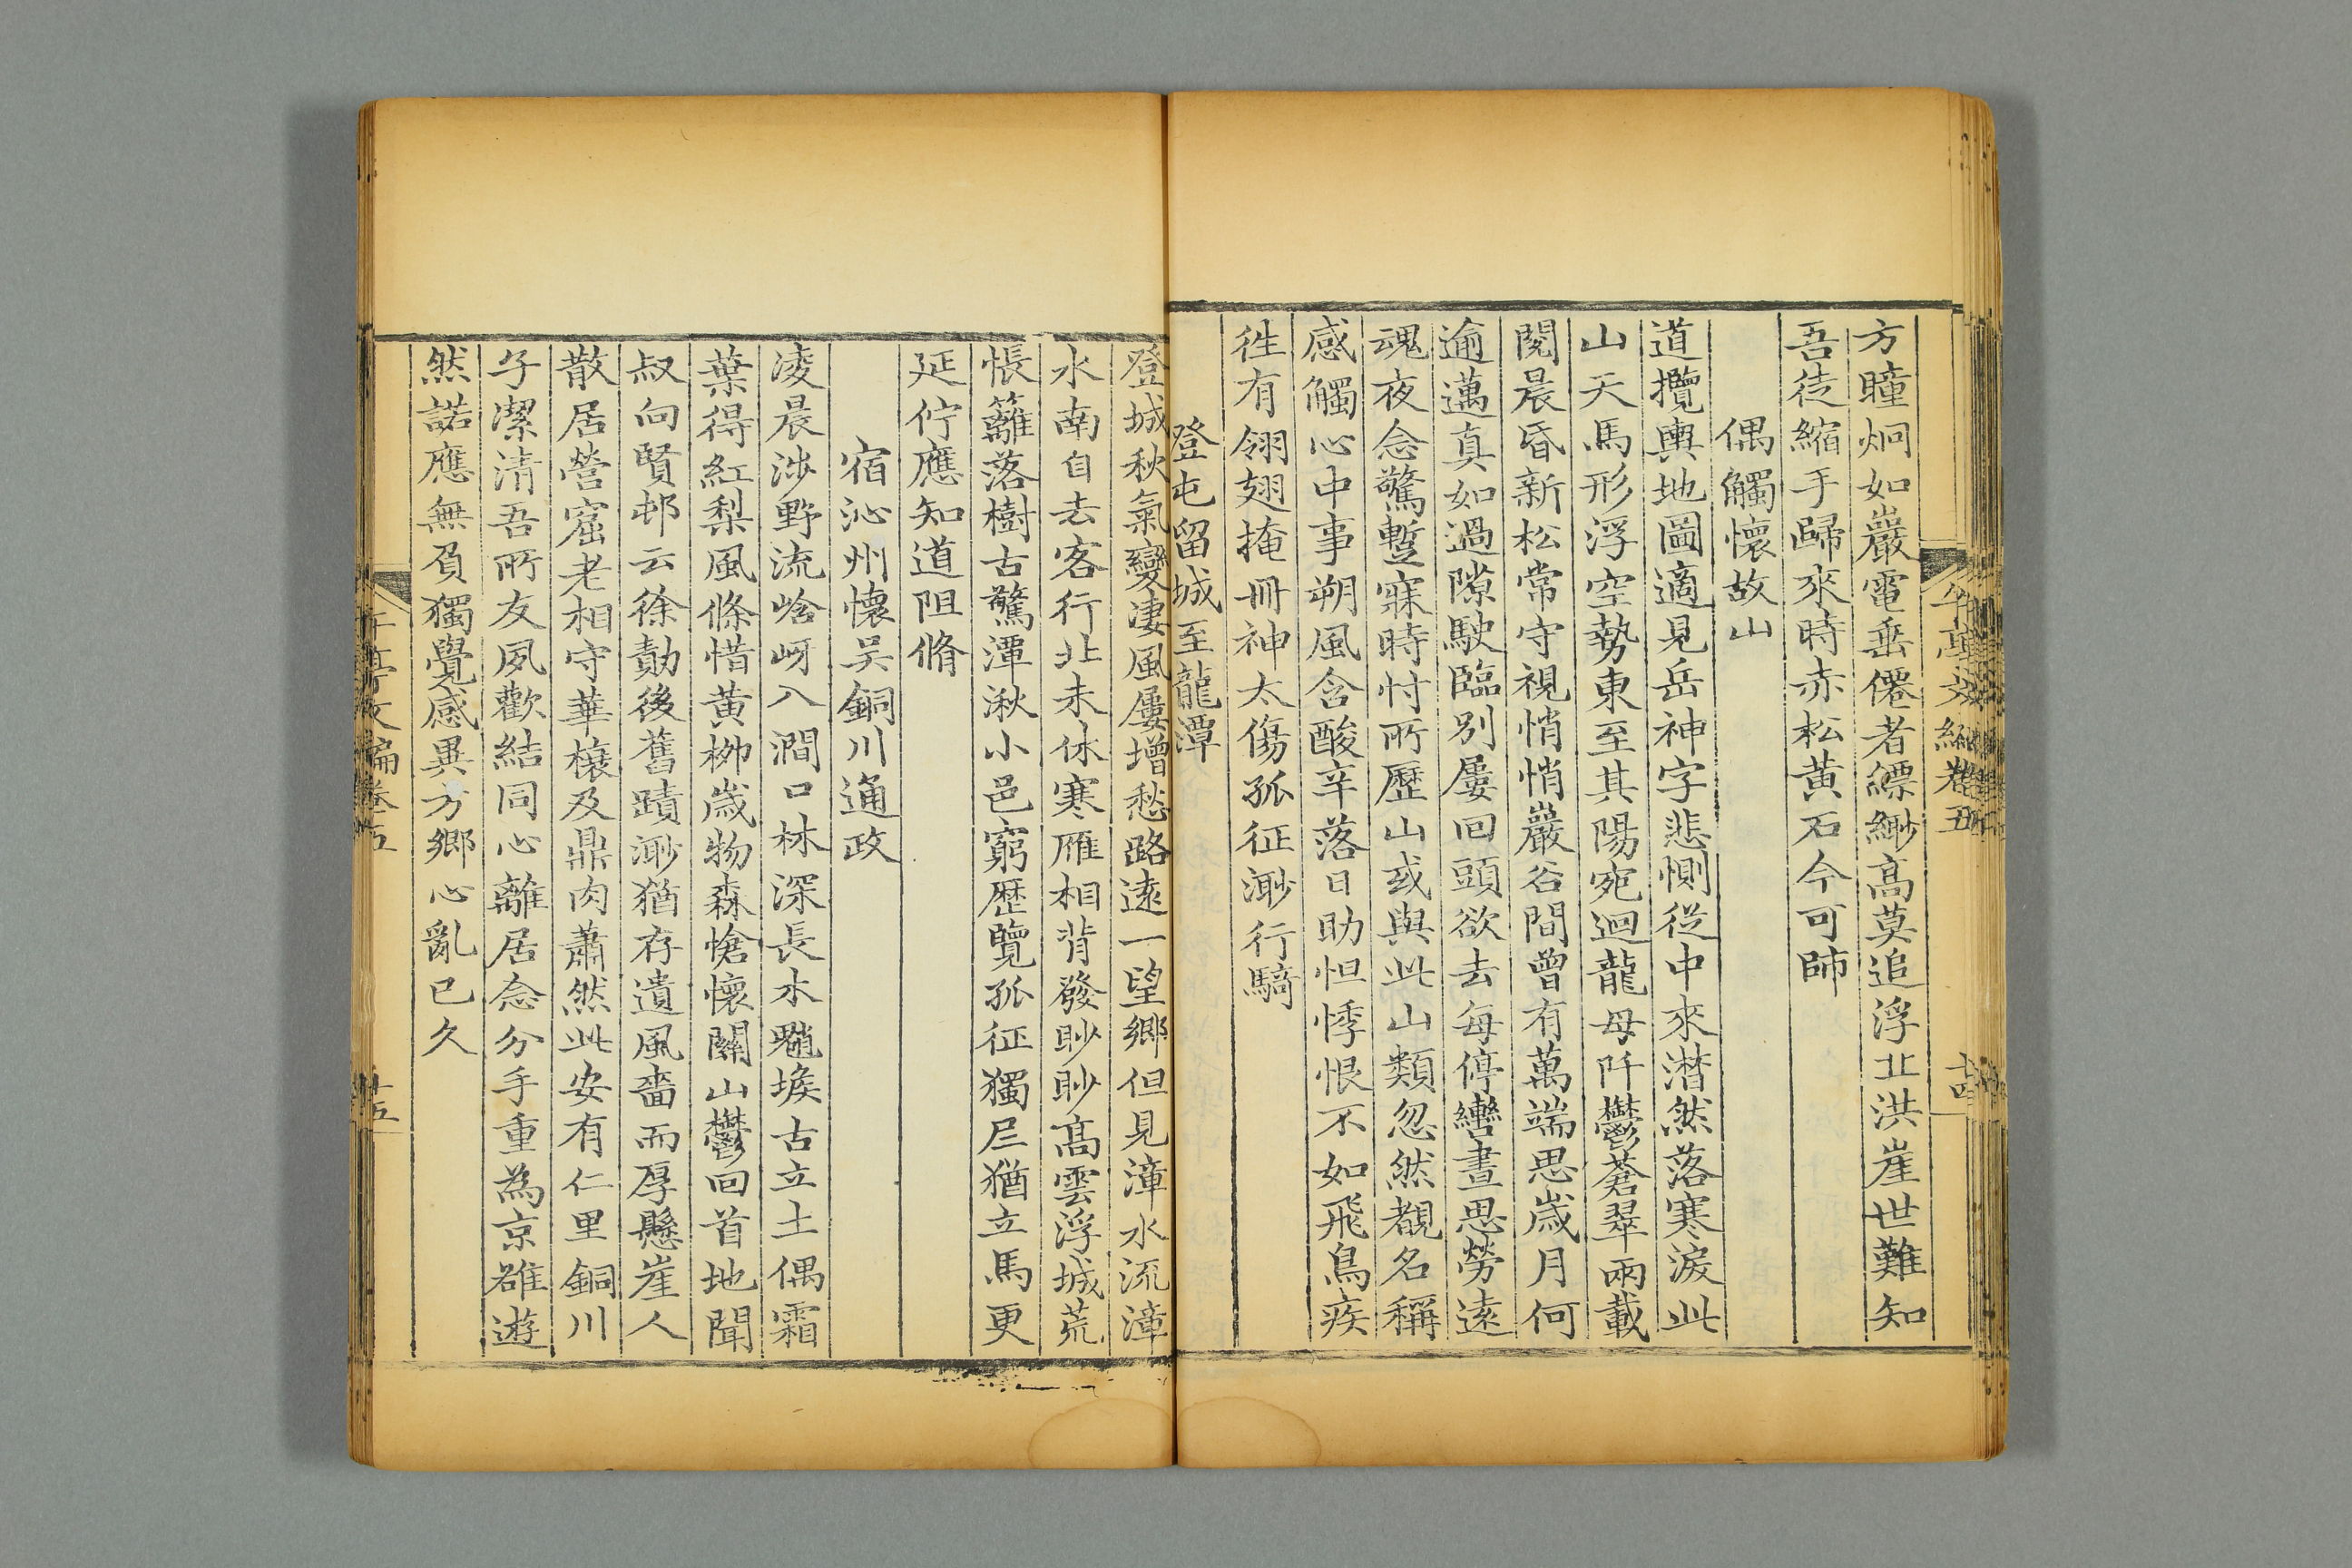 方瞳炯如巖電垂僊者縹緲高莫追浮丘洪崖世難知
吾徒縮手歸來時赤松黄石今可師
偶觸懷故山
道攬輿地圖適見岳神字悲惻從中來潸然落寒淚此
山天馬形浮空勢東至其陽宛迴龍母阡鬱蒼翠兩載
閱晨昏新松常守視悄悄巖谷間曾有萬端思歲月何
逾邁真如過隙駛臨別屢回頭欲去每停轡晝思勞遠
魂夜念驚蹔寐時忖所歷山或與此山類忽然覩名稱
感觸心中事朔風含酸辛落日助怛悸恨不如飛鳥疾
徃有翎翅掩冊神太傷孤征渺行騎
登屯留城至龍潭
登城秋氣變淒風屢增愁路遠一望鄉但見漳水流漳
水南自去客行北未休寒雁相背發眇眇髙雲浮城荒
悵籬落樹古驚潭湫小邑窮歷覽孤征獨㞐猶立馬更
延佇應知道阻脩
宿沁州懷吴銅川通政
淩晨涉野流峆岈入澗口林深長木魖堠古立土偶霜
葉得紅梨風條惜黄栁歲物森愴懷關山鬱回首地聞
叔向賢邨云徐勣後舊蹟渺猶存遺風嗇而厚懸崖人
散居營窟老相守華榱及鼎肉蕭然此安有仁里銅川
子潔清吾所友夙歡結同心離居念分手重為京雒遊
然諾應無負獨覺感異方鄉心亂已久
午亭文編卷五
十五
午亭文編卷五
十四